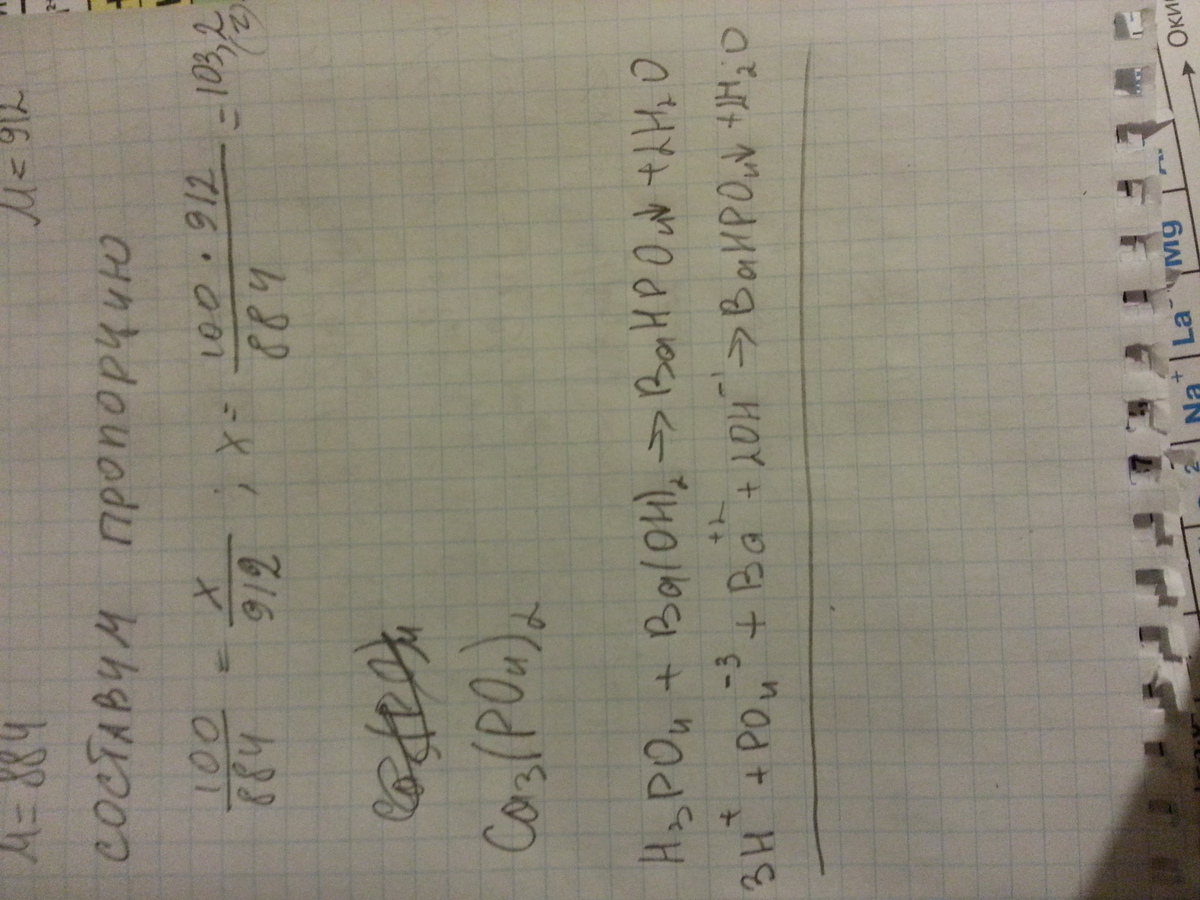 M = 884 M = 912
составим пропорцию
100/884 = x/912 ; x = 100 · 912/884 = 103,2 (г)
Ca3(PO4)2
H3PO4 + Ba(OH)2 → BaHPO4↓ + 2H2O
3H+ + PO4-3 + Ba+2 + 2OH-1 → BaHPO4↓ + 2H2O
Na+ La Mg
Оки